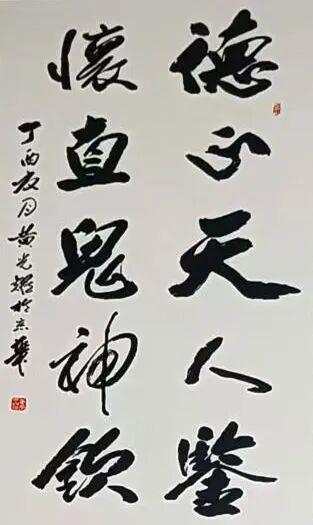 德正天人鑒
懷直鬼神欽
丁酉夏月黄光耀於京華